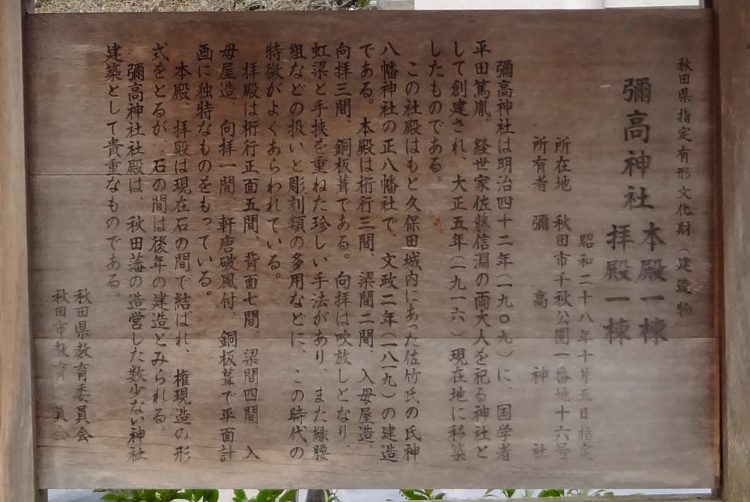 秋田県指定有形文化財（建造物）
彌高神社 本殿一棟
拝殿一棟
昭和二十八年十月五日指定
所在地 秋田市千秋公園一番地十六号
所有者 彌高神社
彌高神社は明治四十二年（一九〇九）に、国学者
平田篤胤、経世家佐藤信淵の両大人を祀る神社と
して創建され、大正五年（一九一六）現在地に移築
したものである。
この社殿はもと久保田城内にあった佐竹氏の氏神
八幡神社の正八幡社で、文政二年（一八一九）の建造
である。本殿は桁行三間、梁間二間、入母屋造、
向拝三間、銅板葺である。向拝は吹放しとなり、
虹梁と手挟を重ねた珍しい手法があり、また縁腰
組などの扱いと彫刻類の多用などに、この時代の
特徴がよくあらわれている。
拝殿は桁行正面五間、背面七間、梁間四間、入
母屋造、向拝一間、軒唐破風付、銅板葺で平面計
画に独特なものをもっている。
本殿、拝殿は現在石の間で結ばれ、権現造の形
式をとるが、石の間は後年の建造とみられる。
彌高神社社殿は、秋田藩の造営した数少ない神社
建築として貴重なものである。
秋田県教育委員会
秋田市教育委員会